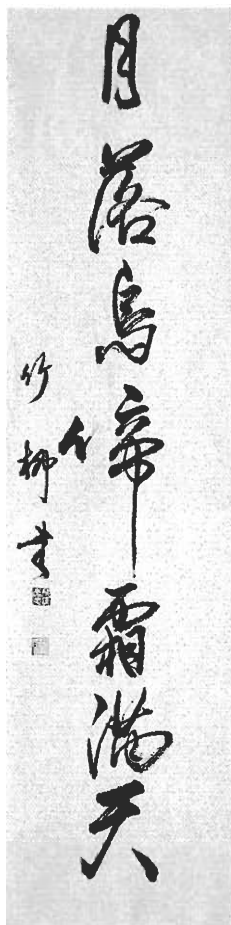 月落烏啼霜満天
竹柳書